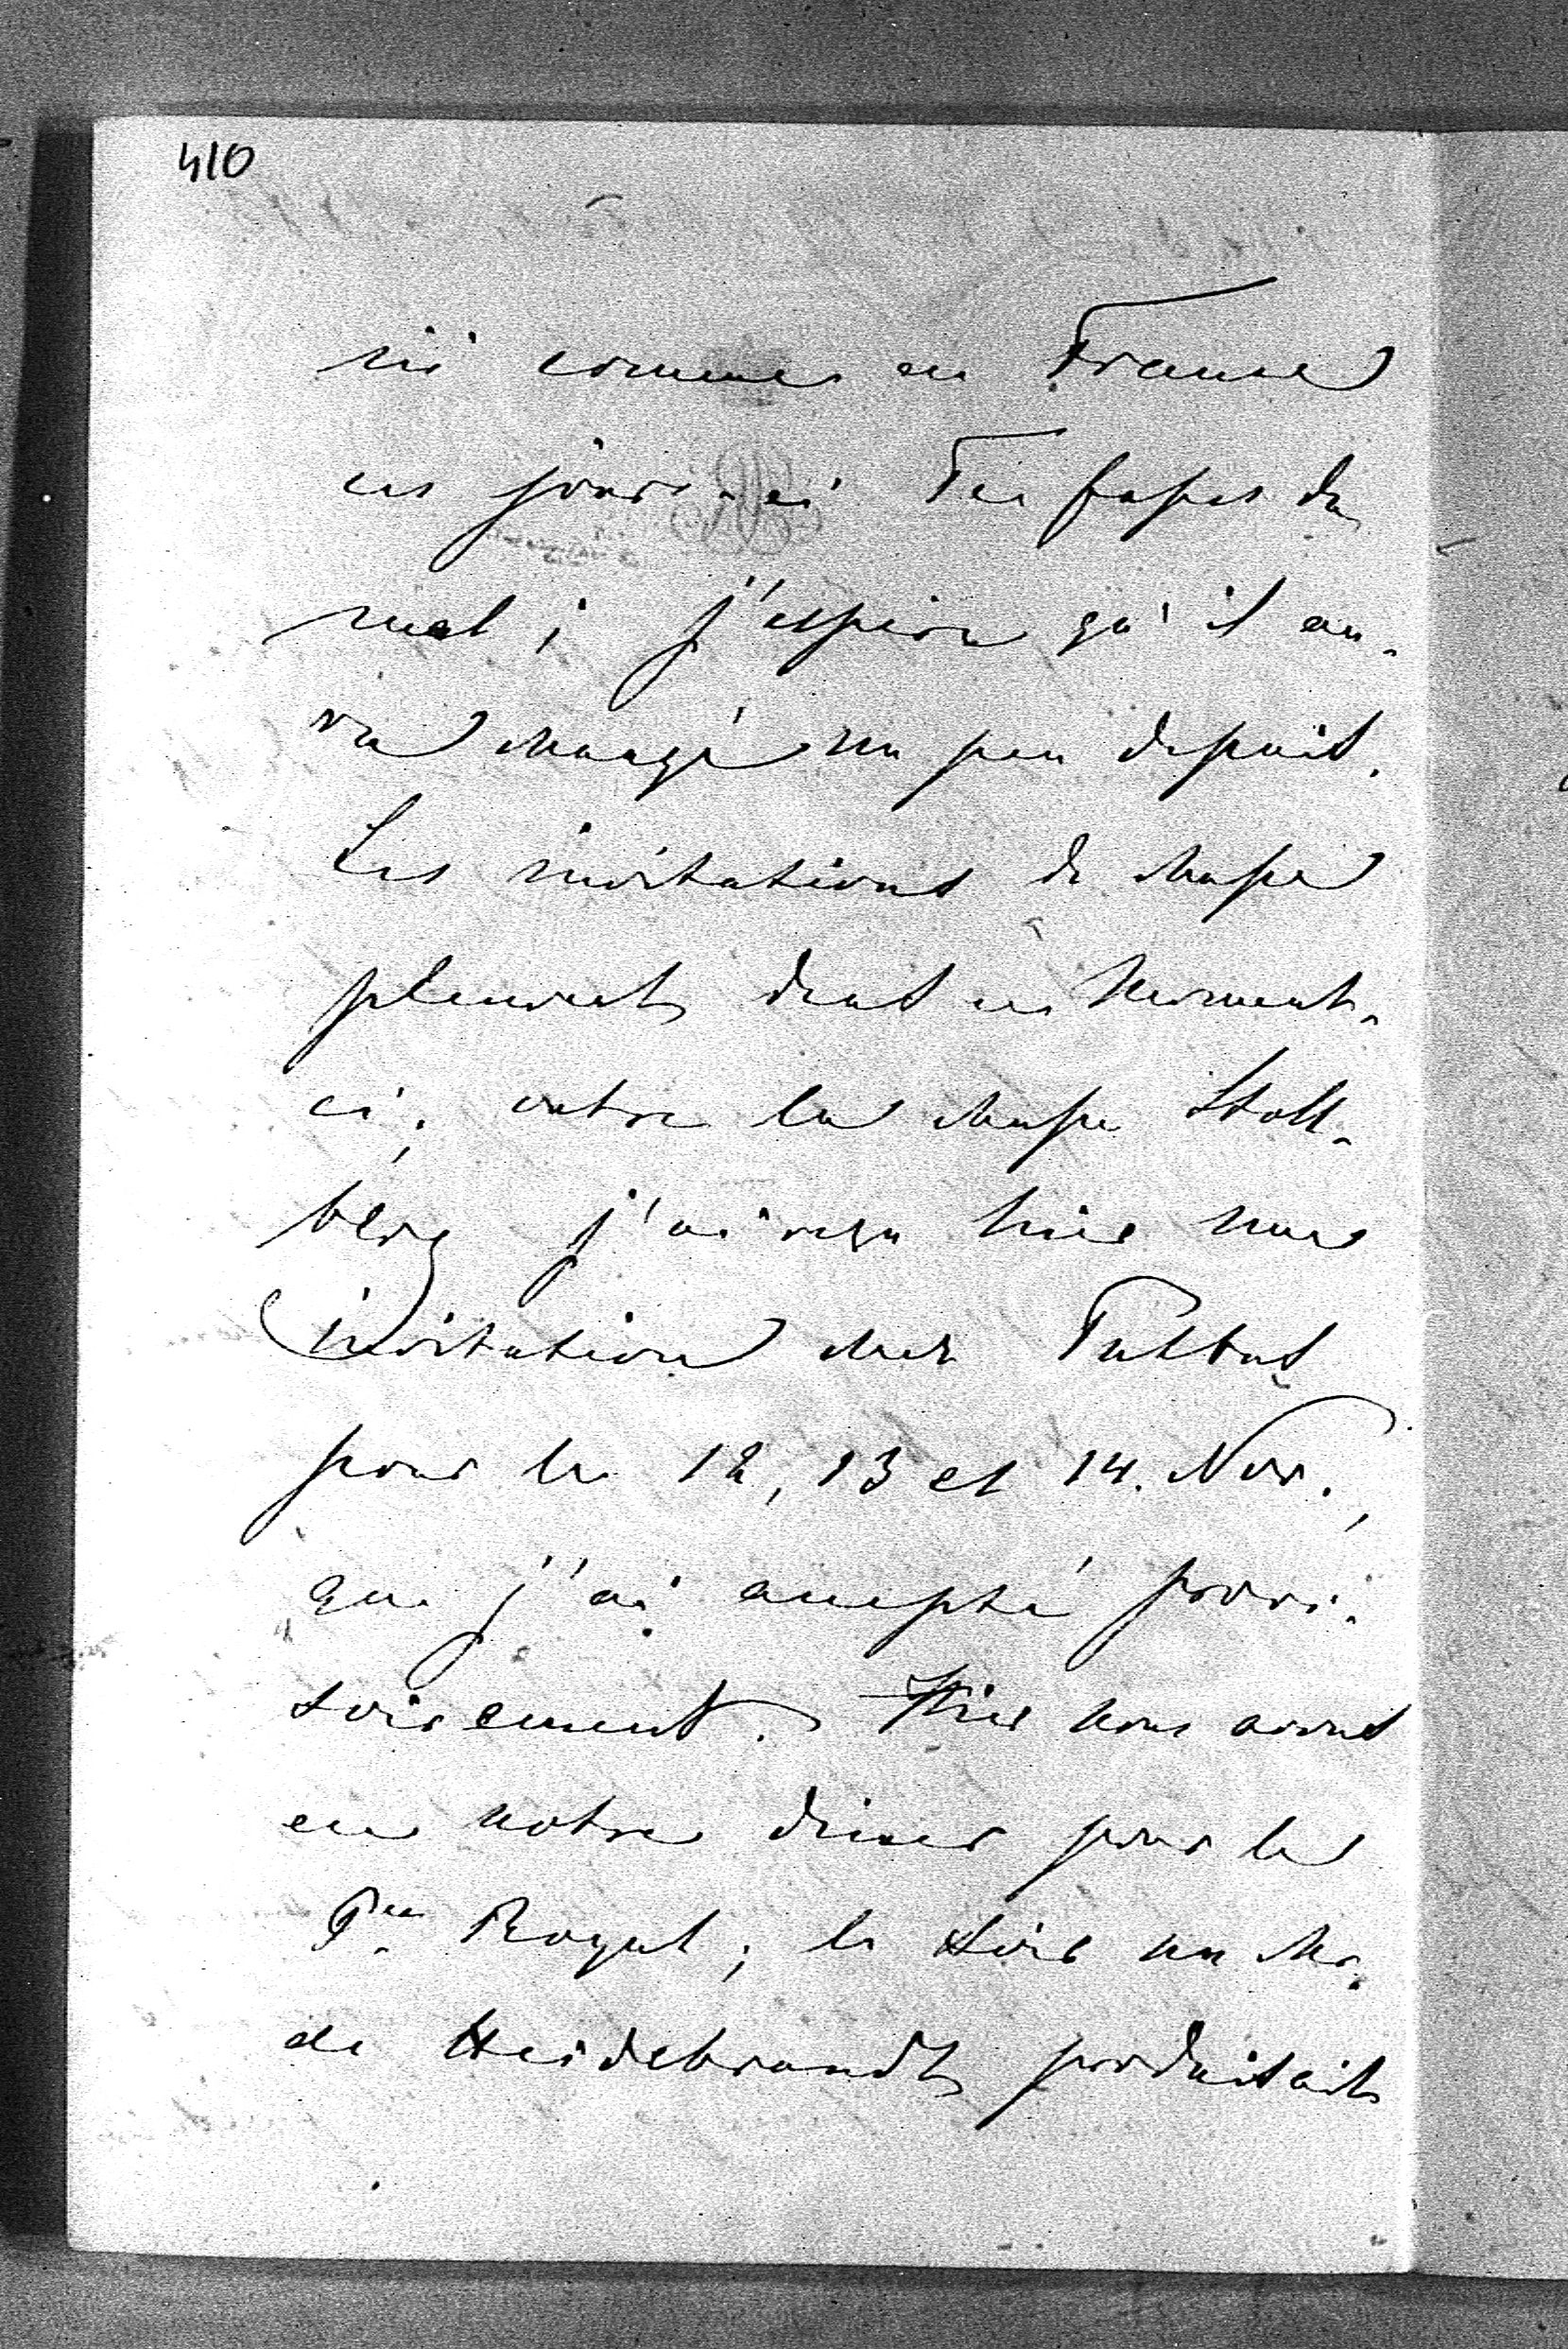 410
ici comme en France
ces jours-ci Feu fasse du
mal; j'espère qu'il au-
ra changé un peu depuis.
Les invitations de chasse
pleuvent dans ce moment-
ci; outre la chasse Stoll-
berg j'ai reçu hier une
invitation chez Talbot
pour le 12, 13 et 14. Nov.,
que j'ai accepté provi-
soirement. Hier nous avons
eu notre diner pour le
Pce Royal; le soir un Mr.
de Heidebrandt produisait